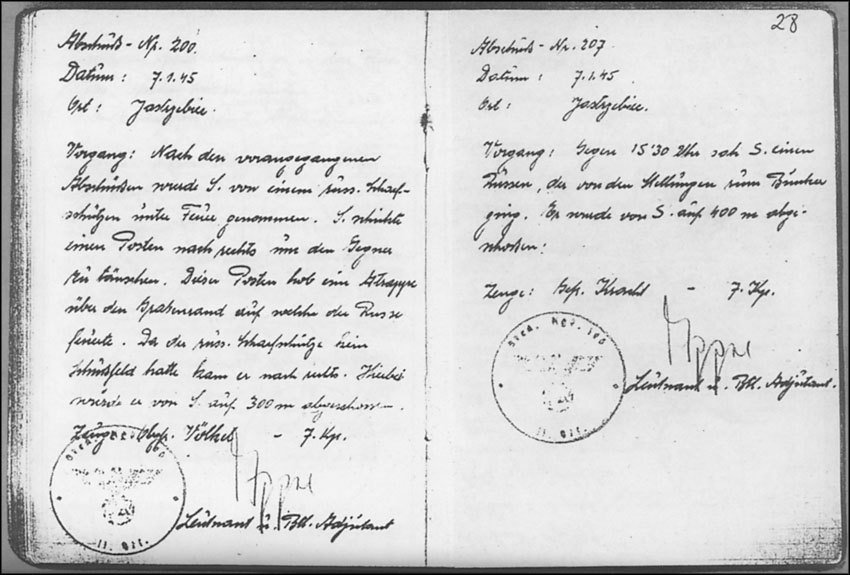 Abschuß - Nr. 200.
Datum : 7.1.45
Ort : Jastrzebice.
Vorgang : Nach den vorangegangenen
Abschüßen wurde S. von einem russ. Scharf-
schützen unter Feuer genommen. S. schickte
einen Posten nach rechts um den Gegner
zu täuschen. Dieser Posten hob eine Atrappe
über den Grabenrand auf welche der Russe
feuerte. Da der russ. Scharfschütze kein
Schußfeld hatte kam er nach rechts. Hierbei
wurde er von S. auf 300 m abgeschossen.
Zeuge: Ogfr. Völkel - 7. Kp.
II. Btl.
Leutnant u. Btl. Adjutant
28
Abschuß - Nr. 207
Datum : 7.1.45.
Ort : Jastrzebice.
Vorgang : Gegen 15'30 Uhr sah S. einen
Russen, der von den Stellungen zum Bunker
ging. Er wurde von S. auf 400 m abge-
schoßen.
Zeuge : Gefr. Kracht - 7. Kp.
II. Btl.
Leutnant u. Btl. Adjutant.